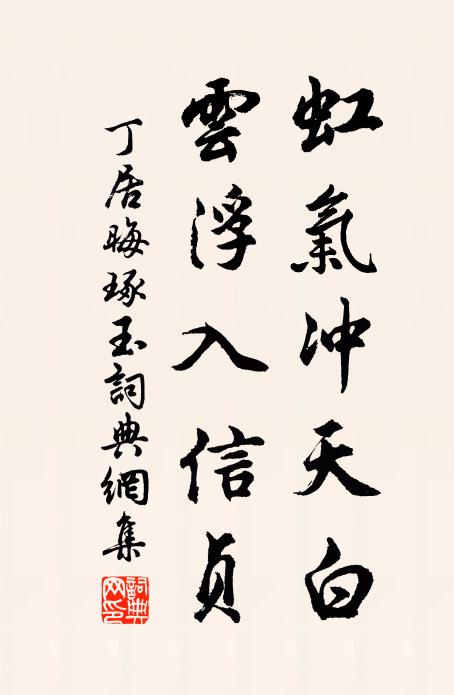 虹氣冲天白
雲浮入信貞
丁居晦琢玉詞典網集
詞典網印